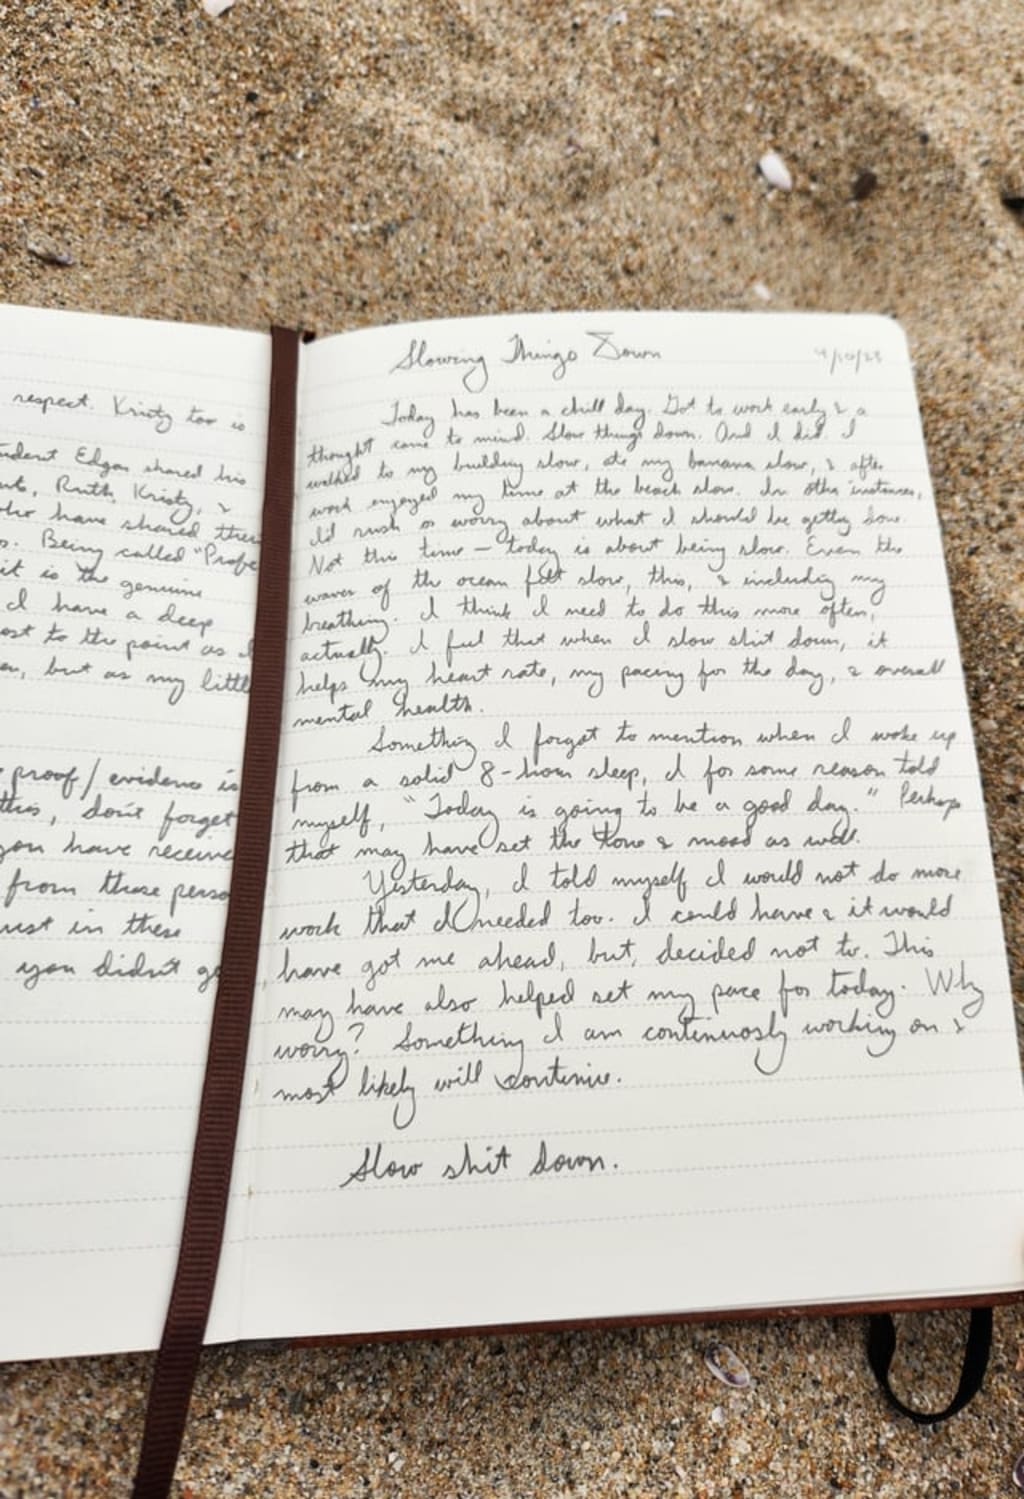 respect. Kristy too is
Edgar shared his
Ruth, Kristy, &
who have shared their
Being called "Profe
it is the genuine
I have a deep
to the point as I
but as my little
proof/evidence is
this, don't forget
you have receive
from these perso
in these
you didn't ge
Slowing Things Down 4/10/23
Today has been a chill day. Got to work early & a
thought came to mind. Slow things down. And I did. I
walked to my building slow, ate my banana slow, & after
work enjoyed my time at the beach slow. In other instances,
I'd rush or worry about what I should be getting done.
Not this time — today is about being slow. Even the
waves of the ocean felt slow, this, & including my
breathing. I think I need to do this more often,
actually. I feel that when I slow shit down, it
helps my heart rate, my pacing for the day, & overall
mental health.
Something I forgot to mention when I woke up
from a solid 8-hour sleep, I for some reason told
myself, "Today is going to be a good day." Perhaps
that may have set the tone & mood as well.
Yesterday, I told myself I would not do more
work that I needed too. I could have & it would
have got me ahead, but, decided not to. This
may have also helped set my pace for today. Why
worry? Something I am continuosly working on &
most likely will continue.
Slow shit down.